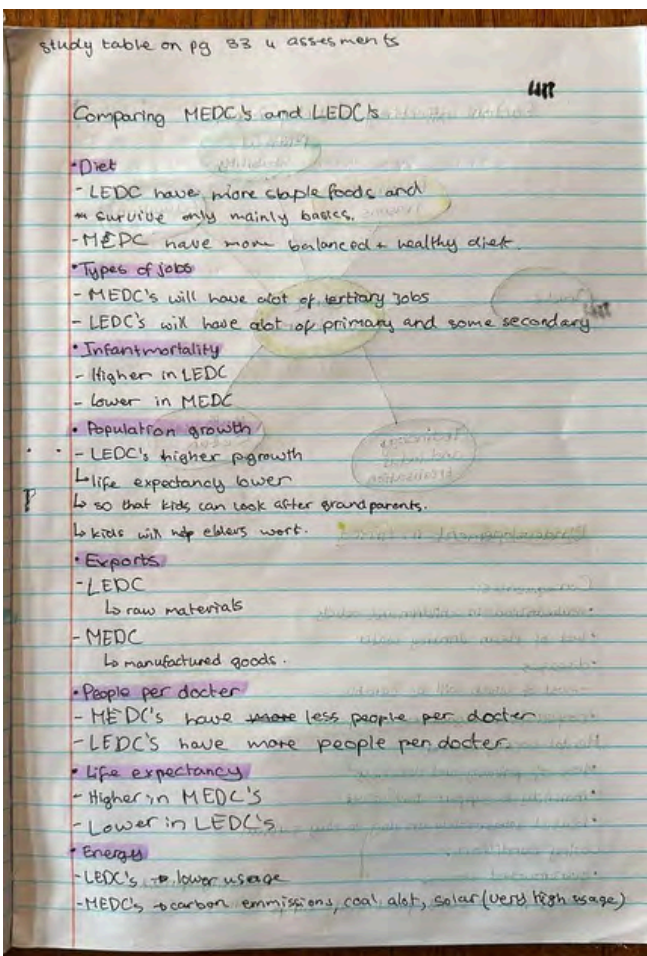 study table on pg 33 4 assesments
Comparing MEDC's and LEDC's
• Diet
- LEDC have more staple foods and
survive only mainly basics.
- MEDC have more balanced + healthy diet.
• Types of jobs
- MEDC's will have alot of tertiary jobs
- LEDC's will have alot of primary and some secondary
• Infant mortality
- Higher in LEDC
- Lower in MEDC
• Population growth
- LEDC's higher p.growth
↳ life expectancy lower
↳ so that kids can look after grandparents.
↳ kids will help elders work.
• Exports
- LEDC
↳ raw materials
- MEDC
↳ manufactured goods.
• People per docter
- MEDC's have more less people per docter
- LEDC's have more people per docter
• Life expectancy
- Higher in MEDC's
- Lower in LEDC's
• Energy
- LEDC's → lower usage
- MEDC's → carbon emmissions, coal alot, solar (very high usage)